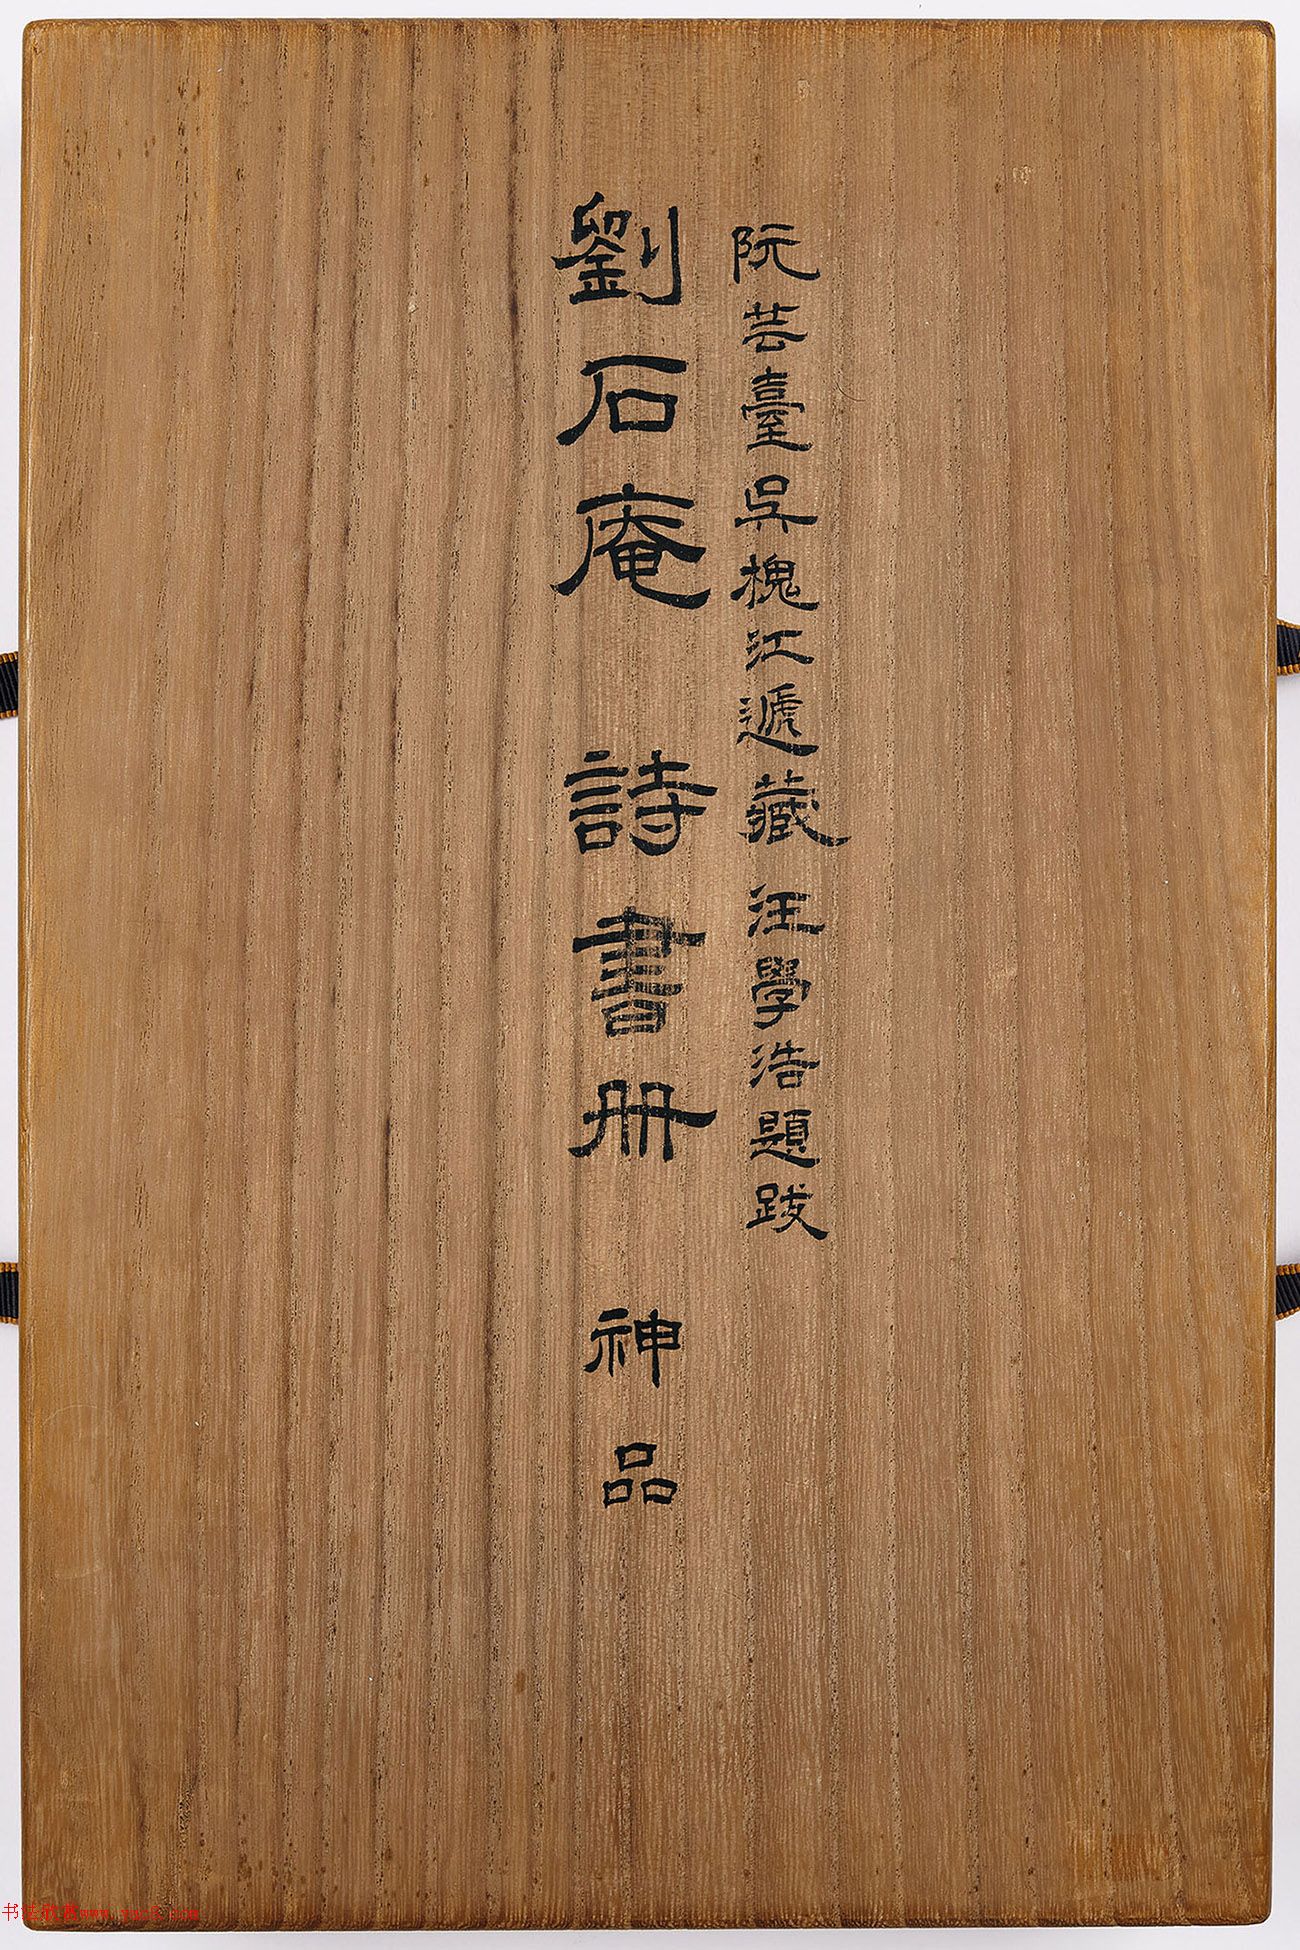 阮芸臺吳槐江遞藏 汪學浩題跋
劉石庵 詩書册 神品
书法欣赏www.yac8.com